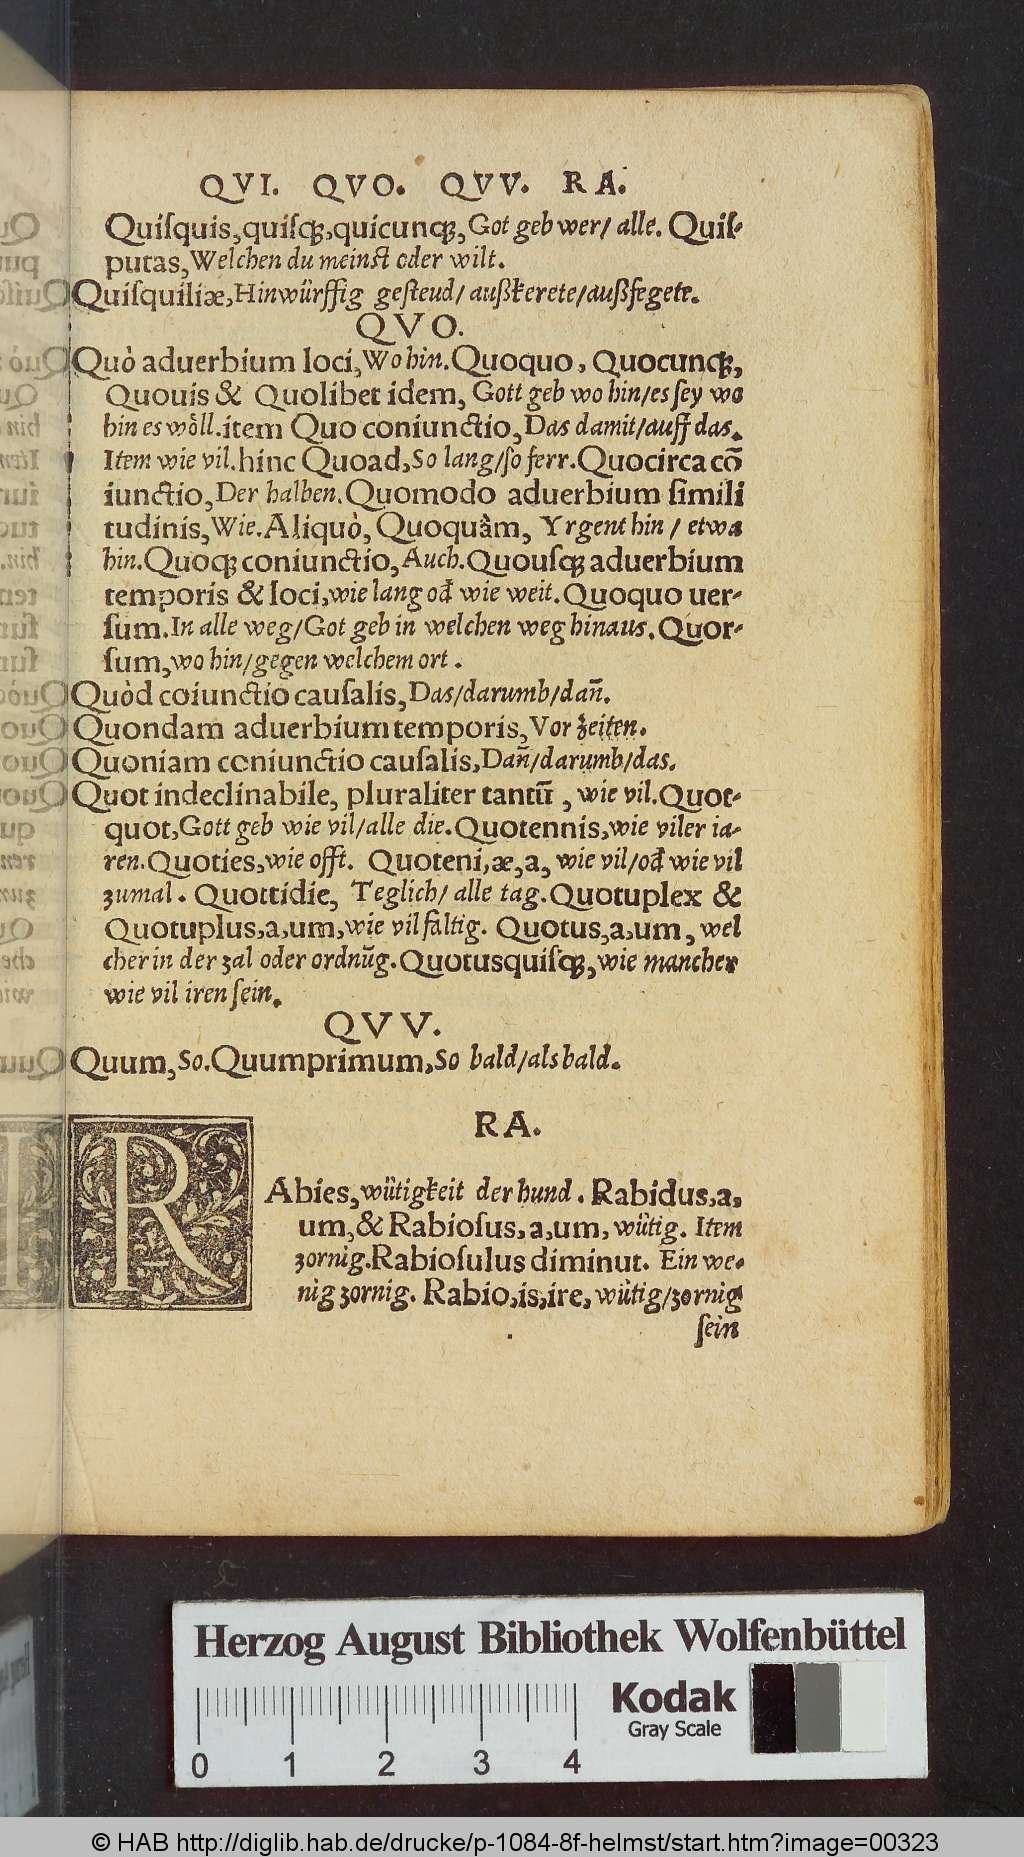 QVI. QVO. QVV. RA.
Quiſquis, quiſqꝫ, quicunqꝫ, Got geb wer/ alle. Quiſ-
putas, Welchen du meinst oder wilt.
Quiſquiliæ, Hinwürffig gesteud/ außkerete/außfegete.
QVO.
Quò aduerbium loci, Wo hin. Quoquo, Quocunqꝫ,
Quouis & Quolibet idem, Gott geb wo hin/es sey wo
hin es wöll. item Quo coniunctio, Das damit/auff das.
Item wie vil. hinc Quoad, So lang/so ferr. Quocirca cō
iunctio, Der halben. Quomodo aduerbium ſimili
tudinis, Wie. Aliquò, Quoquàm, Yrgent hin / etwa
hin. Quoqꝫ coniunctio, Auch. Quouſqꝫ aduerbium
temporis & loci, wie lang od̄ wie weit. Quoquo uer-
ſum. In alle weg/Got geb in welchen weg hinaus. Quor-
ſum, wo hin/gegen welchem ort.
Quòd coiunctio cauſalis, Das/darumb/dañ.
Quondam aduerbium temporis, Vor zeiten.
Quoniam coniunctio cauſalis, Dañ/darumb/das.
Quot indeclinabile, pluraliter tantū, wie vil. Quot-
quot, Gott geb wie vil/alle die. Quotennis, wie viler ia-
ren. Quoties, wie offt. Quoteni, æ, a, wie vil/od̄ wie vil
zumal. Quottidie, Teglich/ alle tag. Quotuplex &
Quotuplus, a, um, wie vilfaltig. Quotus, a, um, wel
cher in der zal oder ordnūg. Quotusquiſqꝫ, wie mancher
wie vil iren sein.
QVV.
Quum, So. Quumprimum, So bald/als bald.
RA.
RAbies, wütigkeit der hund. Rabidus, a,
um, & Rabioſus, a, um, wütig. Item
zornig. Rabioſulus diminut. Ein we-
nig zornig. Rabio, is, ire, wütig/zornig
sein
Herzog August Bibliothek Wolfenbüttel
Kodak
Gray Scale
0 1 2 3 4
© HAB http://diglib.hab.de/drucke/p-1084-8f-helmst/start.htm?image=00323